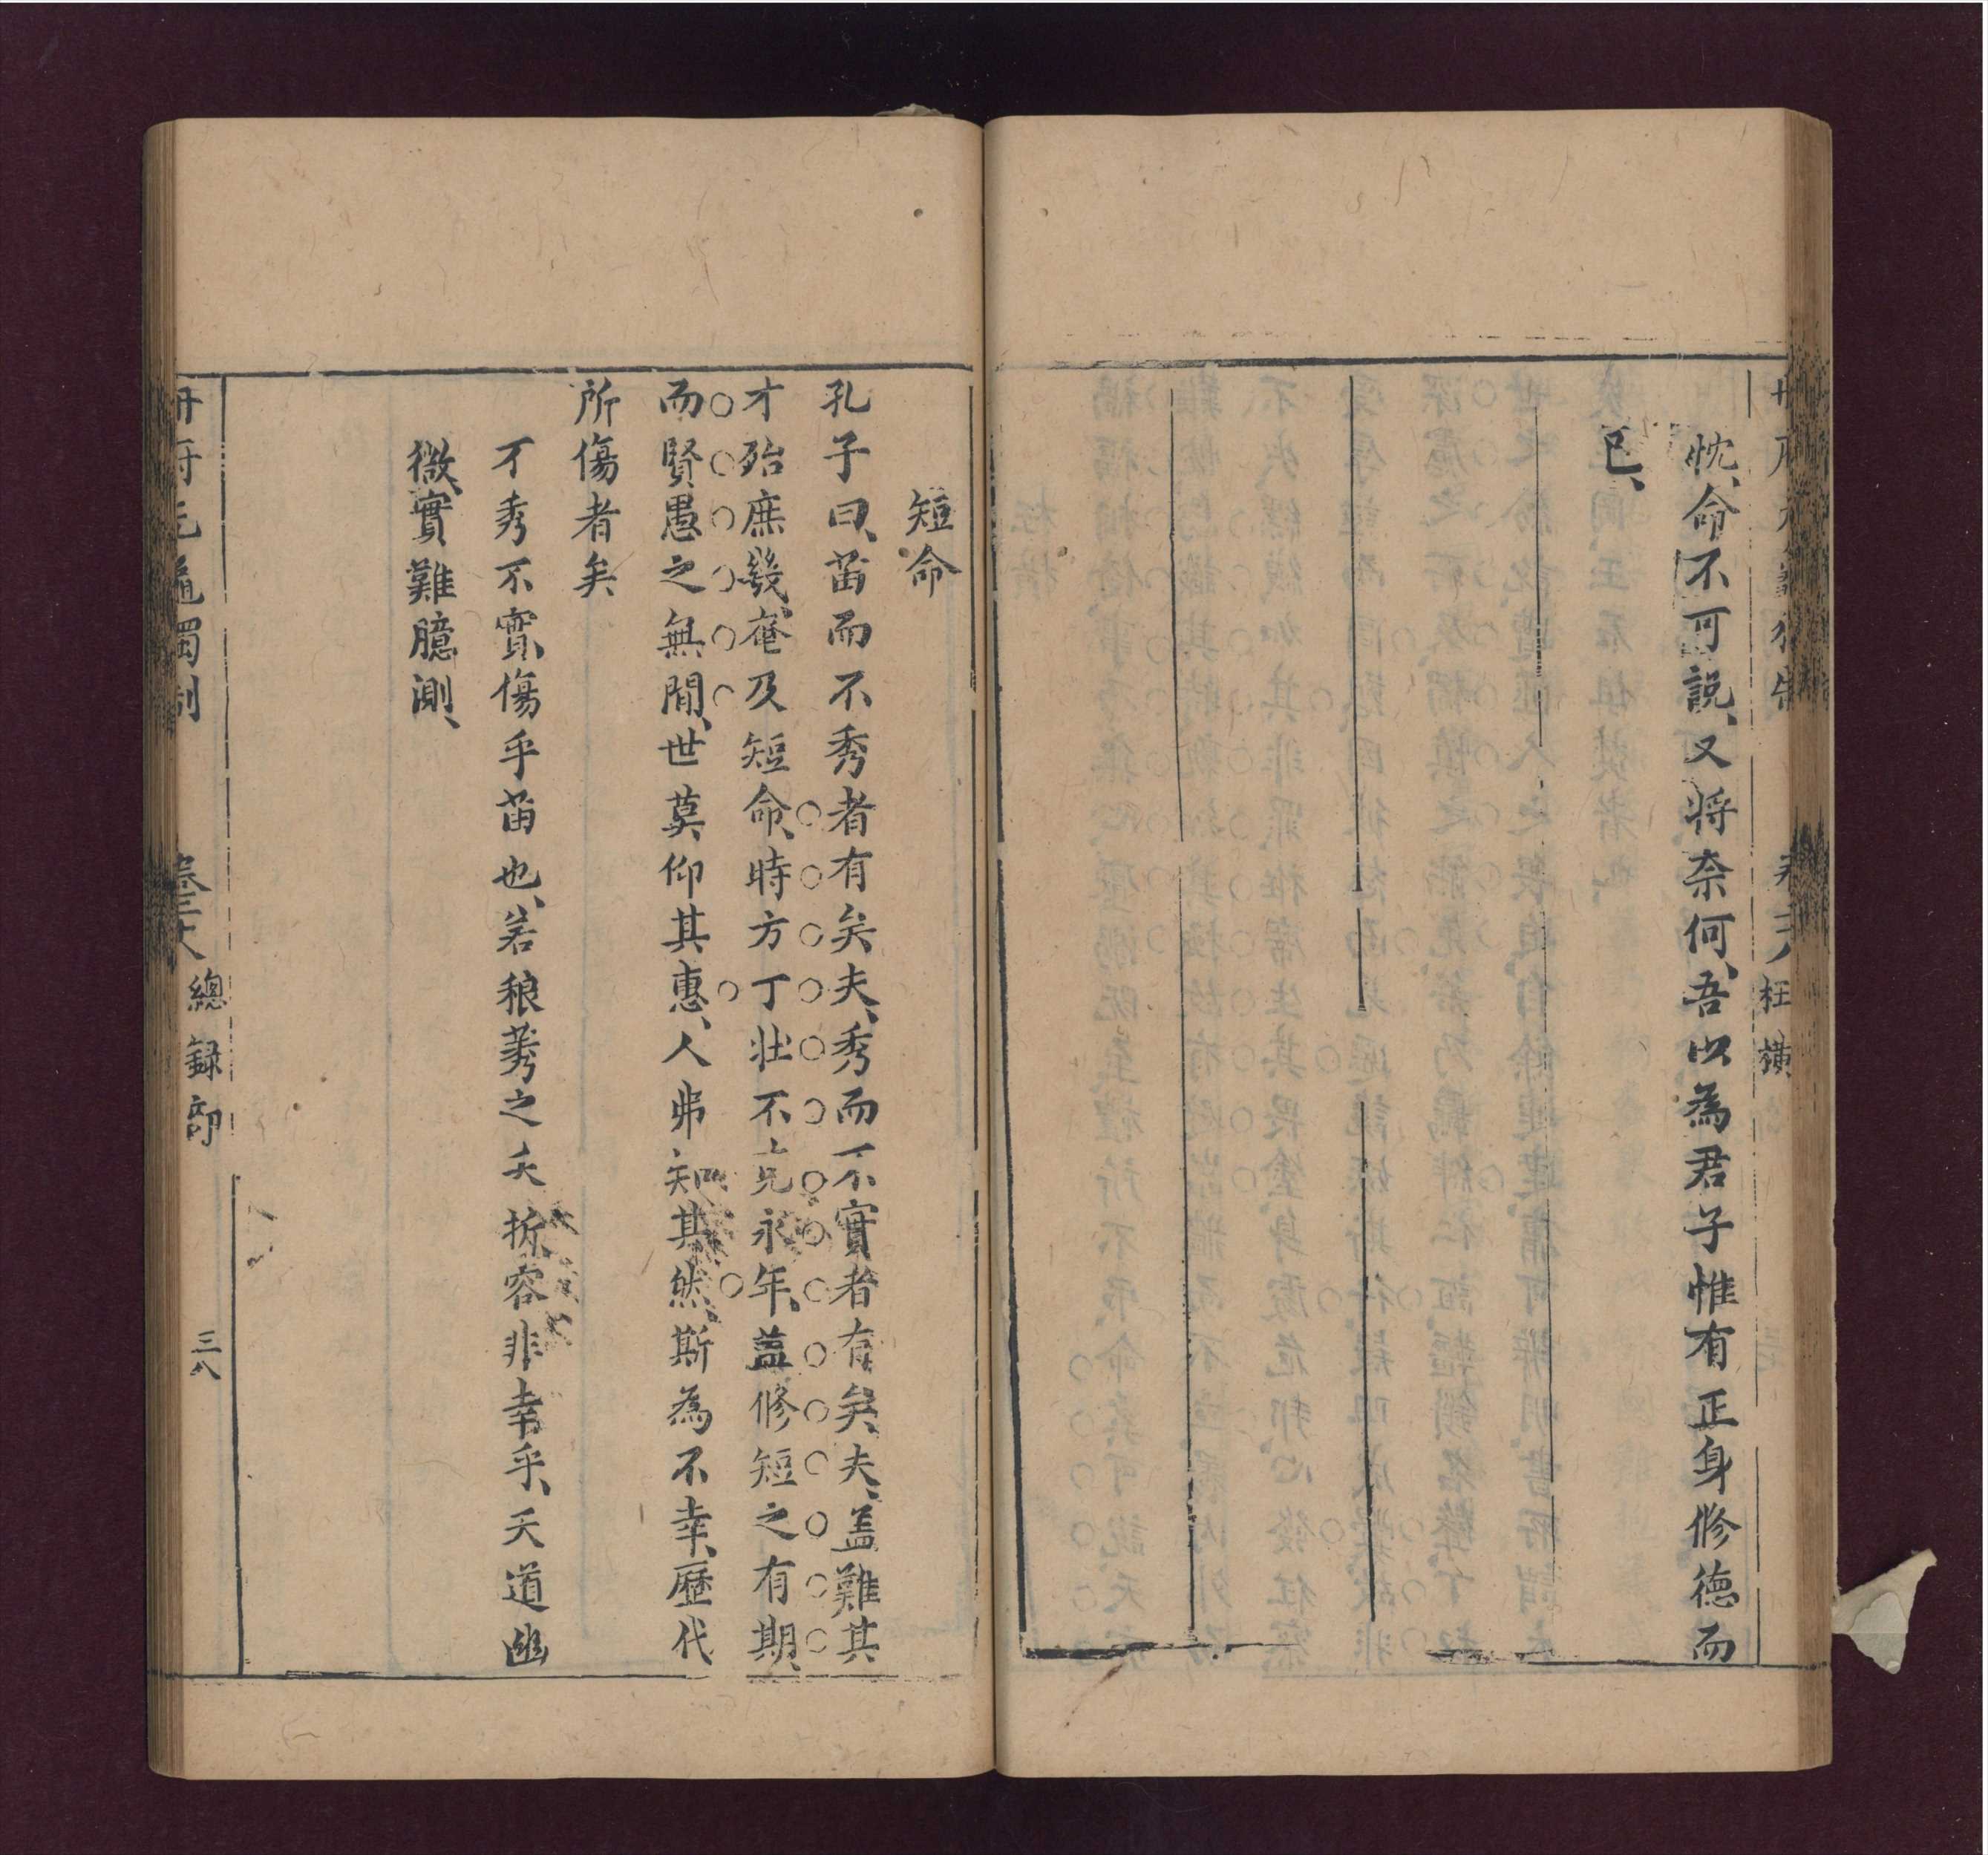 忱、命不可説、又将奈何、吾以為君子惟有正身修德而
已、
枉橫
短命
孔子曰、苗而不秀者有矣夫、秀而不實者有矣夫、盖難其
才殆庶幾、奄及短命、時方丁壯不克永年、盖修短之有期、
而賢愚之無間、世莫仰其惠、人弗知其然、斯為不幸、歷代
所傷者矣
不秀不實、傷乎苗也、若稂莠之夭折、容非幸乎、天道幽
微、實難臆測、
冊府元龜獨制
卷三十八
總録部
三八